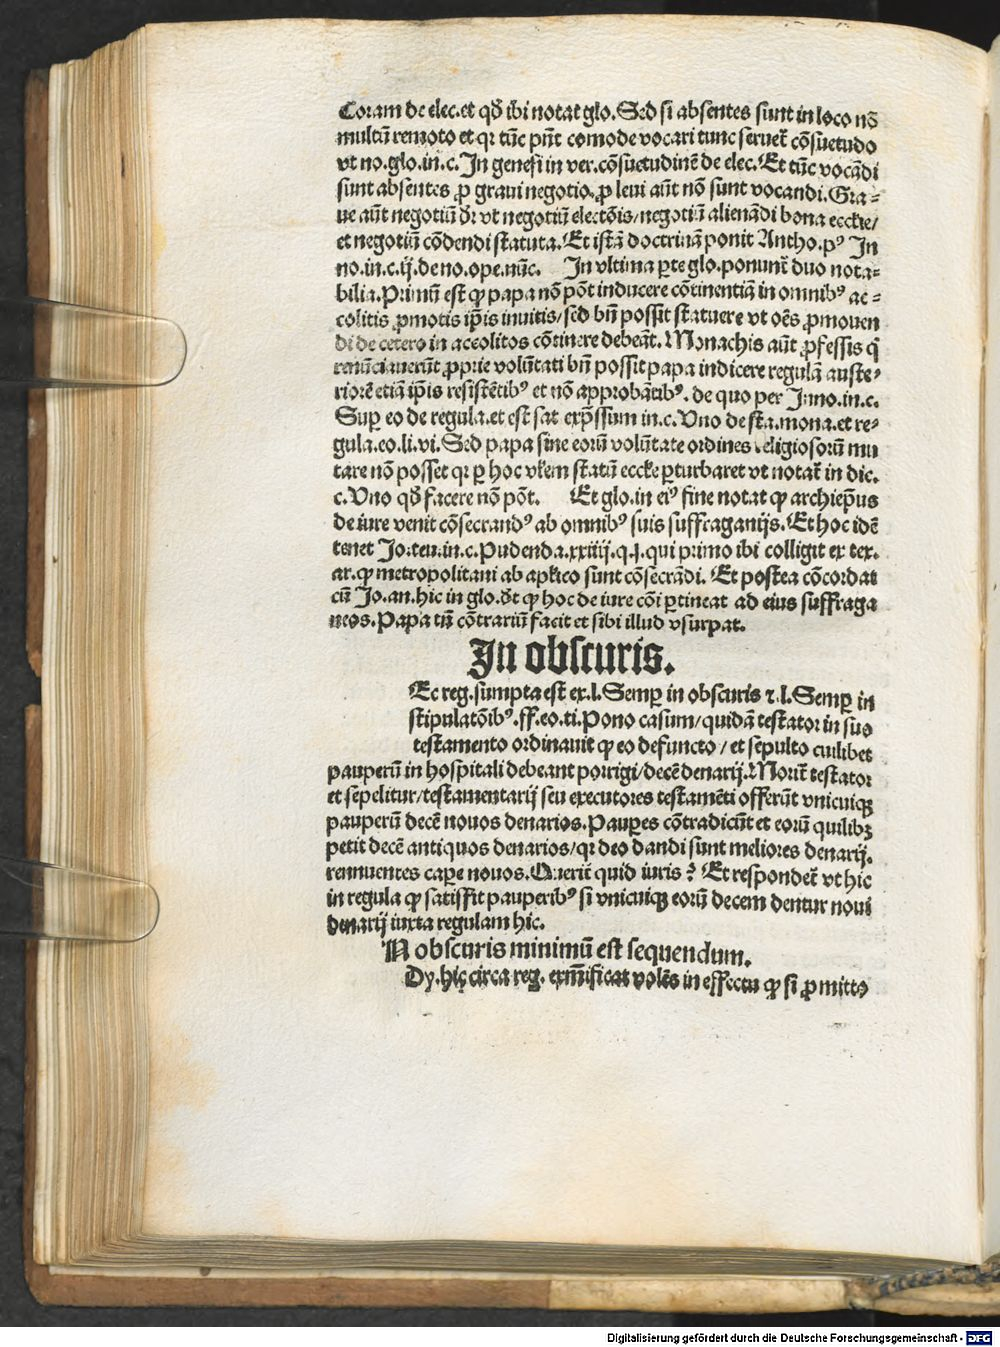 Coram de elec. et qď ibi notat glo. Sed si absentes sunt in loco nō
multū remoto et qꝛ tūc pñt comode vocari tunc seruet᷑ cōsuetudo
vt no. glo. in. c. In genesi in ver. cōsuetudinē de elec. Et tūc vocādi
sunt absentes ꝓ graui negotio. ꝓ leui aūt nō sunt vocandi. Gra⸗
ue aūt negotiū dꝛ vt negotiū electōis/ negotiū alienādi bona eccłie/
et negotiū cōdendi statuta. Et istā doctrinā ponit Antho. pꝰ In
no. in. c. ij. de no. ope. nūc. In vltima ꝑte glo. ponunt᷑ duo nota⸗
bilia. Primū est ꝙ papa nō pōt inducere cōtinentiā in omnibꝰ ac⸗
colitis ꝓmotis ip̄is inuitis/ sēd bn̄ possit statuere vt oēs ꝓmouen
di de cetero in accolitos cōtinere debeāt. Monachis aūt ꝓfessis q̄
renūciauerūt ꝓprie volūtati bn̄ possit papa indicere regulā auste⸗
riorē etiā ip̄is resistētibꝰ et nō approbātibꝰ. de quo per Inno. in. c.
Suꝑ eo de regula. et est sat exp̄ssum in. c. Vno de sta. mona. et re⸗
gula. eo. li. vi. Sed papa sine eorū volūtate ordines religiosorū mu
tare nō posset qꝛ ꝑ hoc vłem statū eccłie ꝑturbaret vt notat᷑ in dic.
c. Vno qď facere nō pōt. Et glo. in eiꝰ fine notat ꝙ archiep̄us
de iure venit cōsecrandꝰ ab omnibꝰ suis suffraganijs. Et hoc idē
tenet Jo. teu. in. c. Pudenda. xxiiij. q. j. qui primo ibi colligit ex tex.
ar. ꝙ metropolitani ab apłico sunt cōsecrādi. Et postea cōcordat
cū Jo. an. hic in glo. dt ꝙ hoc de iure cōi ꝑtineat ad eius suffraga
neos. Papa tn̄ cōtrariū facit et sibi illud vsurpat.
In obscuris.
Ec reg. sumpta est ex. l. Semꝑ in obscuris ⁊. l. Semꝑ in
stipulatōibꝰ. ff. eo. ti. Pono casum/ quidā testator in suo
testamento ordinauit ꝙ eo defuncto/ et sepulto cuilibet
pauperū in hospitali debeant porrigi/ decē denarij. Morit᷑ testator
et sepelitur/ testamentarij seu executores testamēti offerūt vnicuiqꝫ
pauperū decē nouos denarios. Pauꝑes cōtradicūt et eorū quilibꝫ
petit decē antiquos denarios/ qꝛ deo dandi sunt meliores denarij.
rennuentes caꝑe nouos. Querit᷑ quid iuris? Et respondet᷑ vt hic
in regula ꝙ satisfit pauperibꝰ si vnicuiqꝫ eorū decem dentur noui
denarij iuxta regulam hic.
N obscuris minimū est sequendum.
Dy. hic circa reg. exm̄ificat volēs in effectu ꝙ si ꝓmitto
Digitalisierung gefördert durch die Deutsche Forschungsgemeinschaft - DFG